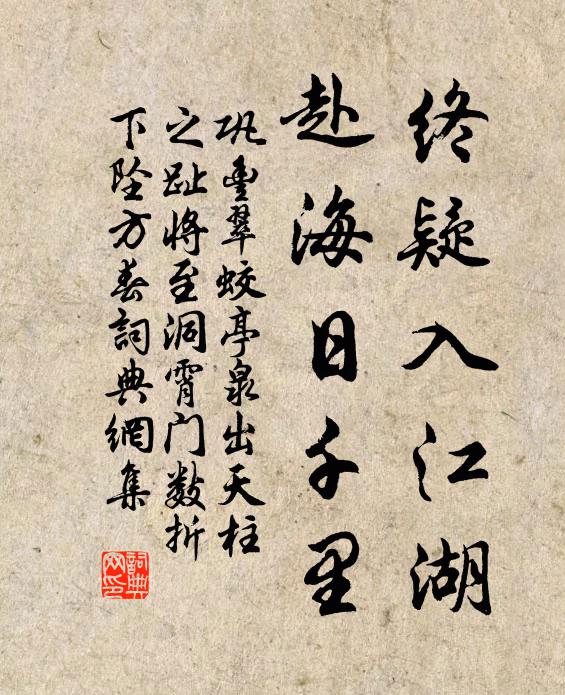 终疑入江湖
赴海日千里
巩丰翠蛟亭泉出天柱
之趾将至洞霄门数折
下坠方春詞典網集
詞典
网印